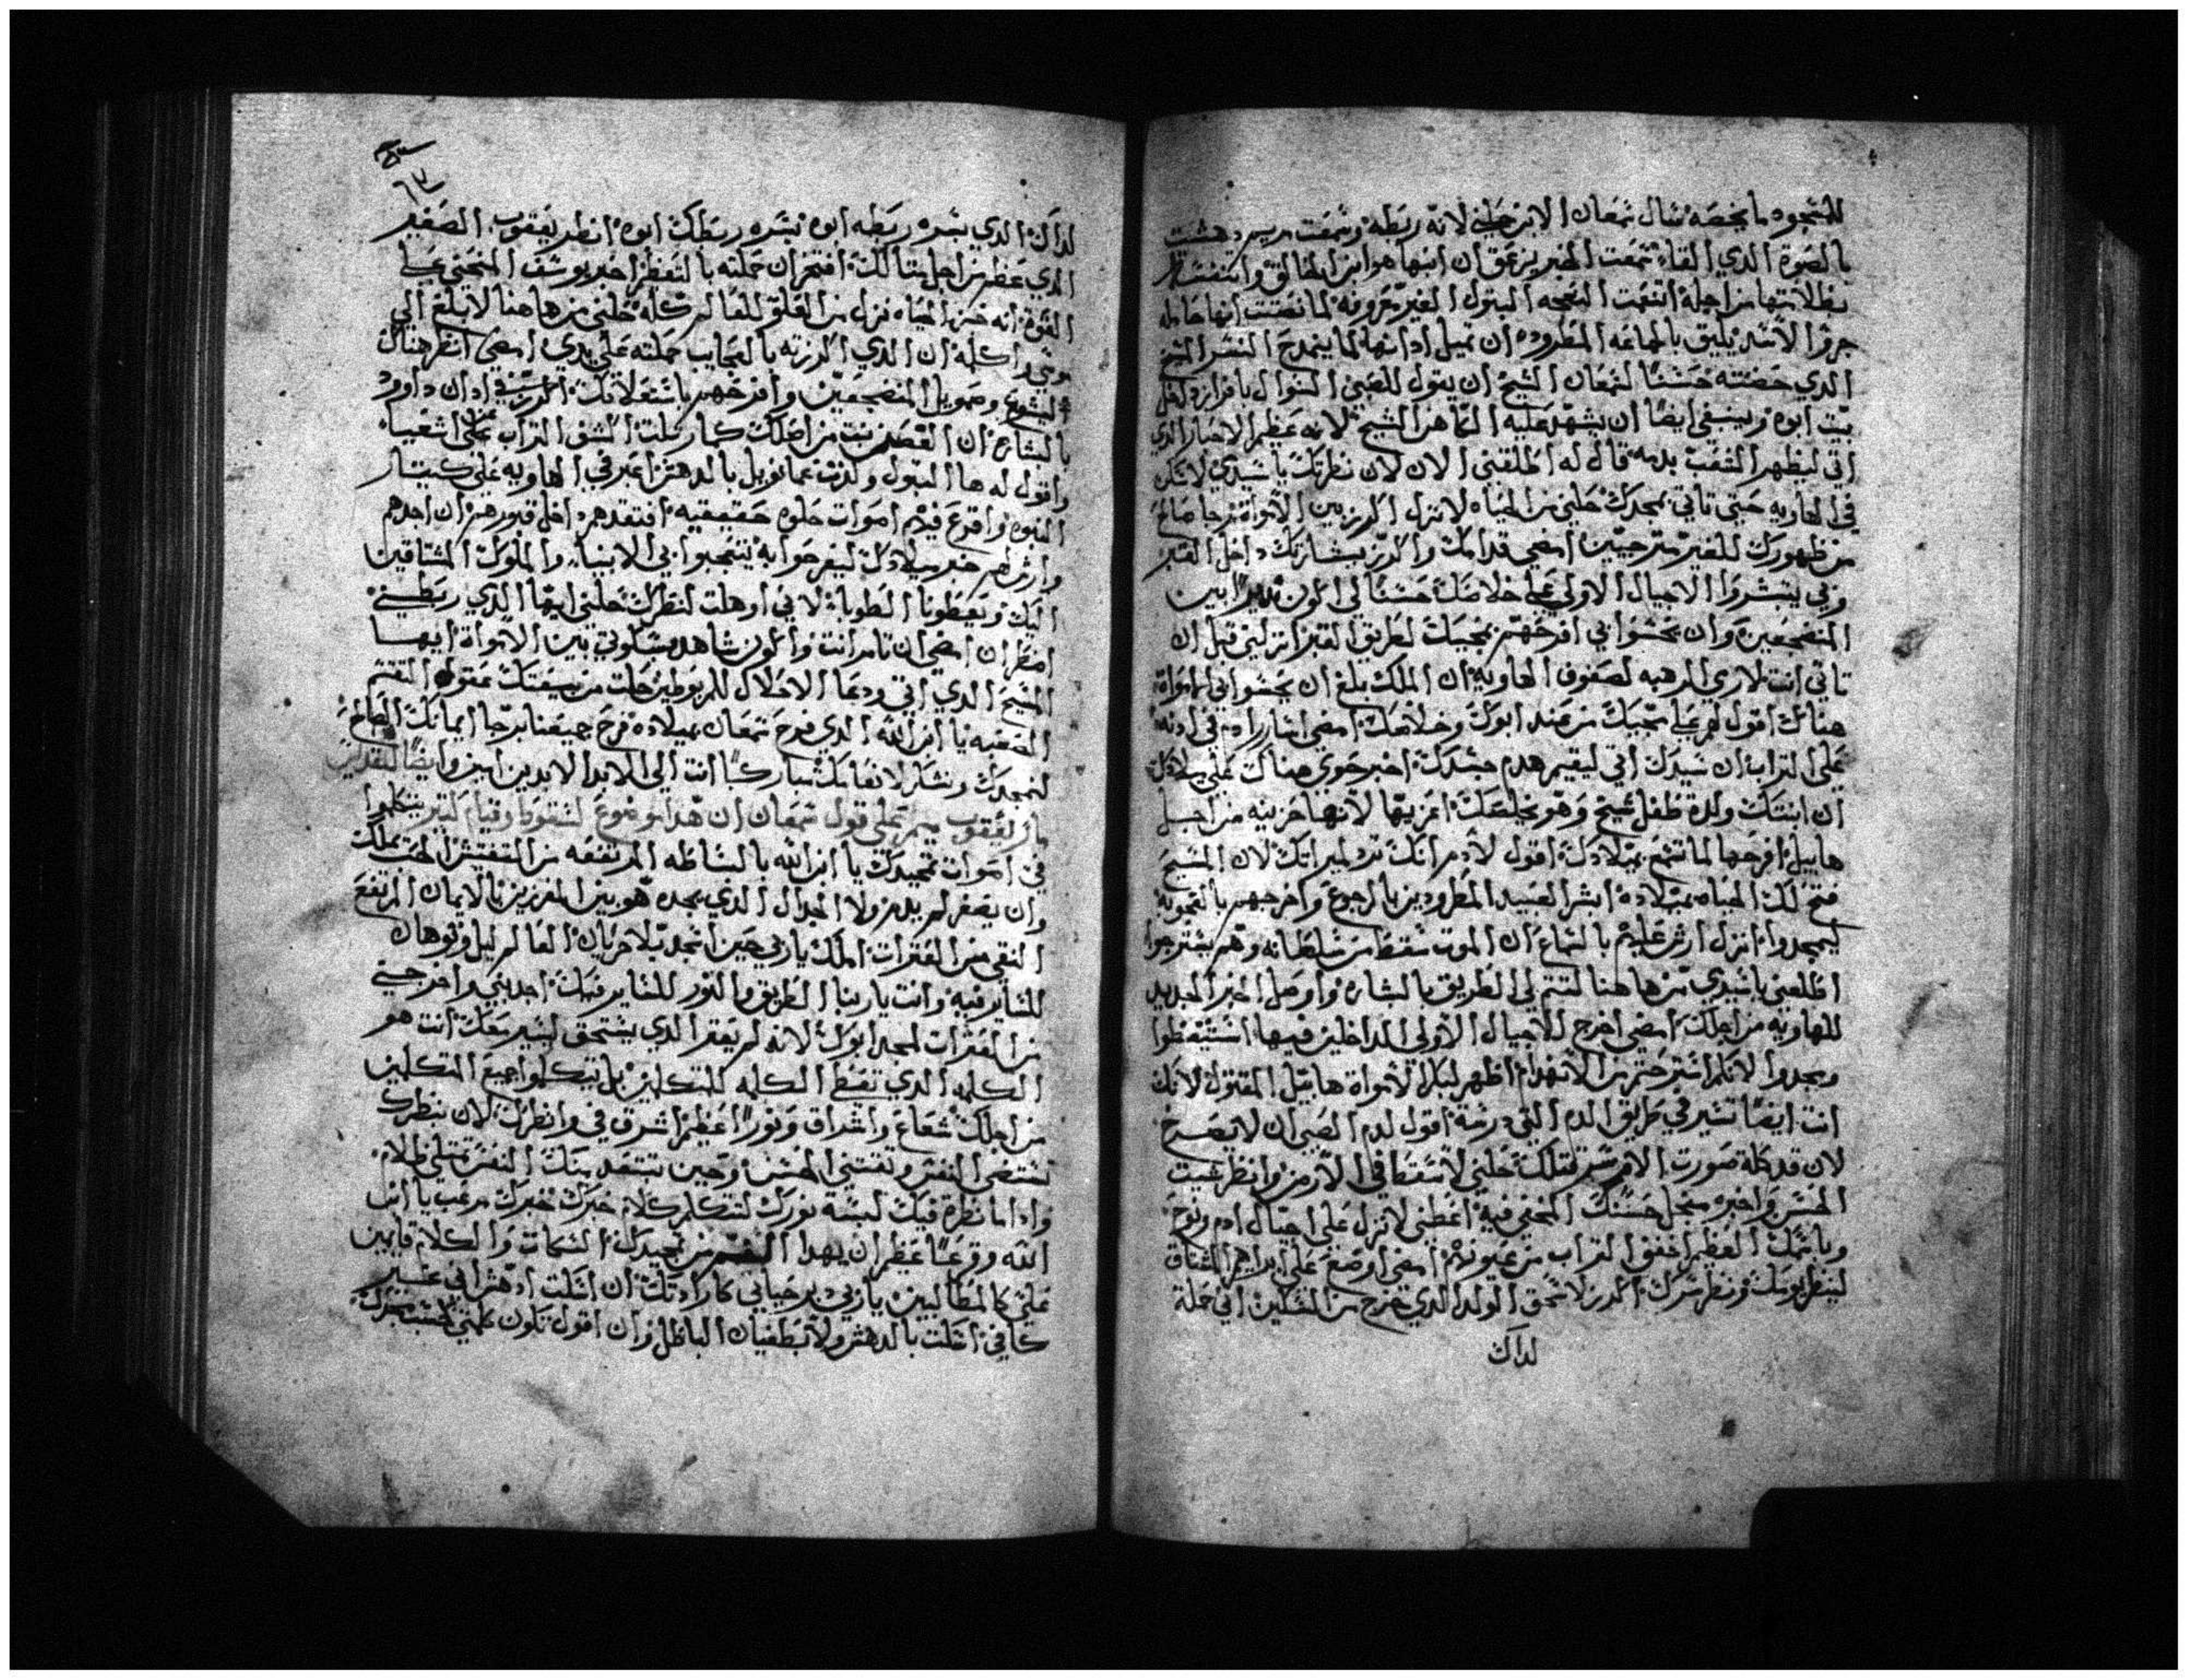 للسجود ما يخصه سال سمعان الابن حلني لانه ربطه وسمعت مريم دهشت
بالصوة الدي القاه سمعت الخبر يزعق ان ابنها هو ابن الخالق
بطلابتها من اجله اتفقت النعجه البتول الغير معروفه لما نصتت انها حامله
جرو الاسد يليق بالجماعه المطروده ان تميل ادانها لما يتمدح النسر الشيخ
الدي حضنته حسنا لسمعان الشيخ ان يقول للصبي السوال بافراز داخل
بيت ابوه وينبغي ايضا ان يشهد عليه الكاهن الشيخ لانه عظيم الاحبار الدي
اتي ليظهر الشعب بدمه قال له اطلقني الان لان نظرتك يا سيدي لاسكن
في الهاويه حتي تاتي بمجدك حلني من الحياه لانزل اكرز بين الامواة فرحا صالحا
من ظهورك للغير مترجيين امضي قدامك واكرز بشارتك داخل القبر
وبي يتبشروا الاجيال الاولي علي خلاصك حسنا لي اكون نديرا بين
المنضجعين وان يحسوا بي افرحهم بمجيك لطريق القبر اتركني قبل ان
تاتي انت لاري الرهبه لصفوف الهاويه ان الملك بلغ ان يحسوا بي الامواة
هناك اقول لهم علي مجيك من عند ابوك وخلاصك امضي اشار ادم في ادنه
علي التراب ان سيدك اتي ليقيم هدم جسدك اخبر حوي هناك علي ميلادك
ان ابنتك ولدة طفل شيخ وهو يخلصك اعزيها لانها حزينه من اجل
هابيل افرحها لما تسمع بميلادك اقول لادم انك ترد لميراتك لان المسيح
فتح لك الحياه بميلاده ابشر العبيد المطرودين بالرجوع واخرجهم باعجوبه
ليمجدوا انزل ارش عليهم بالسماع ان الموت سقط من سلطانه وهم يسترجوا
اطلعني يا سيدي من هاهنا لتتم لي الطريق بالبشاره واوصل الخبر الجديد
للهاويه من اجلك امضي اخرج الاجيال الاولي الداخلين فيها استيقظوا
ومجدوا لانكم استرحتم من الانهدام اظهر لبكر الامواة هابيل المقتول لانك
انت ايضا تسير في طريق الدم التي درسة اقول لدم الصبي ان لا يصرخ
لان قد بطلة صورت الامر سر قتلك حلني لاسقط في الارض وانظر شيت
الحسن واخبره منجل حسنك المخفي فيه اعطني لانزل علي اجيال ادم ونوح
وباسمك العظيم انفض التراب من عيونهم امضي اوضع علي ابراهيم المشتاق
لينظر يومك ونظر سرك اكرز لاسحق الولد الدي تفرح من السكين اني حملة
لداك
لداك الدي بسره ربطه ابوه بسره ربطك ابوه انظر يعقوب الصغير
الدي عظم من اجل مثالك افتخر ان حملته بالتعظم اخبر يوسف المنحني علي
القوة انه خبز الحياه نزل من العلو للعالم كله حلني من هاهنا لابلغ الي
موسي واكلمه ان الدي اكرزته بالعجايب حملته علي يدي امضي انظر هناك
اليشوع وصمويل المنضجعين وافرحهم باستعلانك اكرز في ادان داوود
بالبشاره ان الغصن نبت من اصلك كما رتلت اكشف التراب علي اشعياه
واقول له ها البتول ولدت عمانويل بالدهش اعبر في الهاويه علي كيتار
النبوه واقرع فيهم اصوات حلوه حقيقيه افتقدهم داخل قبورهم ان اجدهم
وارش لهم خبر ميلادك ليفرحوا به يتعجبوا بي الانبيا والملوك المشتاقين
اليك ويعطونا الطوبا لاني اوهلت لنظرك حلني ايها الدي ربطني
انتظر ان امضي ان تامر انت واكون شاهد سكوتي بين الامواة ايها
المسيح الذي اتي ودعا الاحلال للمربوطين حلت من سيفك عقول القتم
الصعبه يا ابن الله الدي فرح سمعان بميلاده فرح جميعنا برجا ايمانك الصالح
لنمجدك ونشكر لانعامك مباركا انت الي الابد الابدين امين وايضا للقديس
مار يعقوب ميمر علي قول سمعان ان هدا موضوع لسقوط وقيام لكثير يتكلموا
في اصوات تمجيدك يا ابن الله بالبساطه المرتفعه من التفتش الحب بملك
وان يصغر لم يدمر ولا الجدال الدي يجده هو بين المفرزين بالايمان المرتفع
النقي من العثرات املك يا ربي حين اتمجد بلا حريان العالم ليل وتوهان
للساير فيه وانت يا ربنا الطريق والنور للساير فيك اجدبني واخرجني
من العثرات لمجد ابوك لانه لم يعتر الدي يستحق ليسير معك انت هو
الكلمه الدي تعطي الكلمه للمتكلمين بل تتكلموا جميع المتكلمين
من اجلك شعاع واشراق ونورا عظيم اشرق في وانظرك لان بنظرك
تستضي النفس وتقتني الحسن وحين تبتعد منك النفس تمتلي ظلام
وادا ما نظرة فيك لبسة نورك لتتكلم كلام خبرك خبرك مرعب يا ابن
الله وروعا عظيم ان يهدا الفم من تمجيدك السكات والكلام قايمين
علي كالمطالبين يا ربي دبر حياتي كارادتك ان اسكت ادهش اني غير
كافي اسكت بالدهش ولا بطغيان الباطل وان اقول تكون كلمتي بحسب مجدك